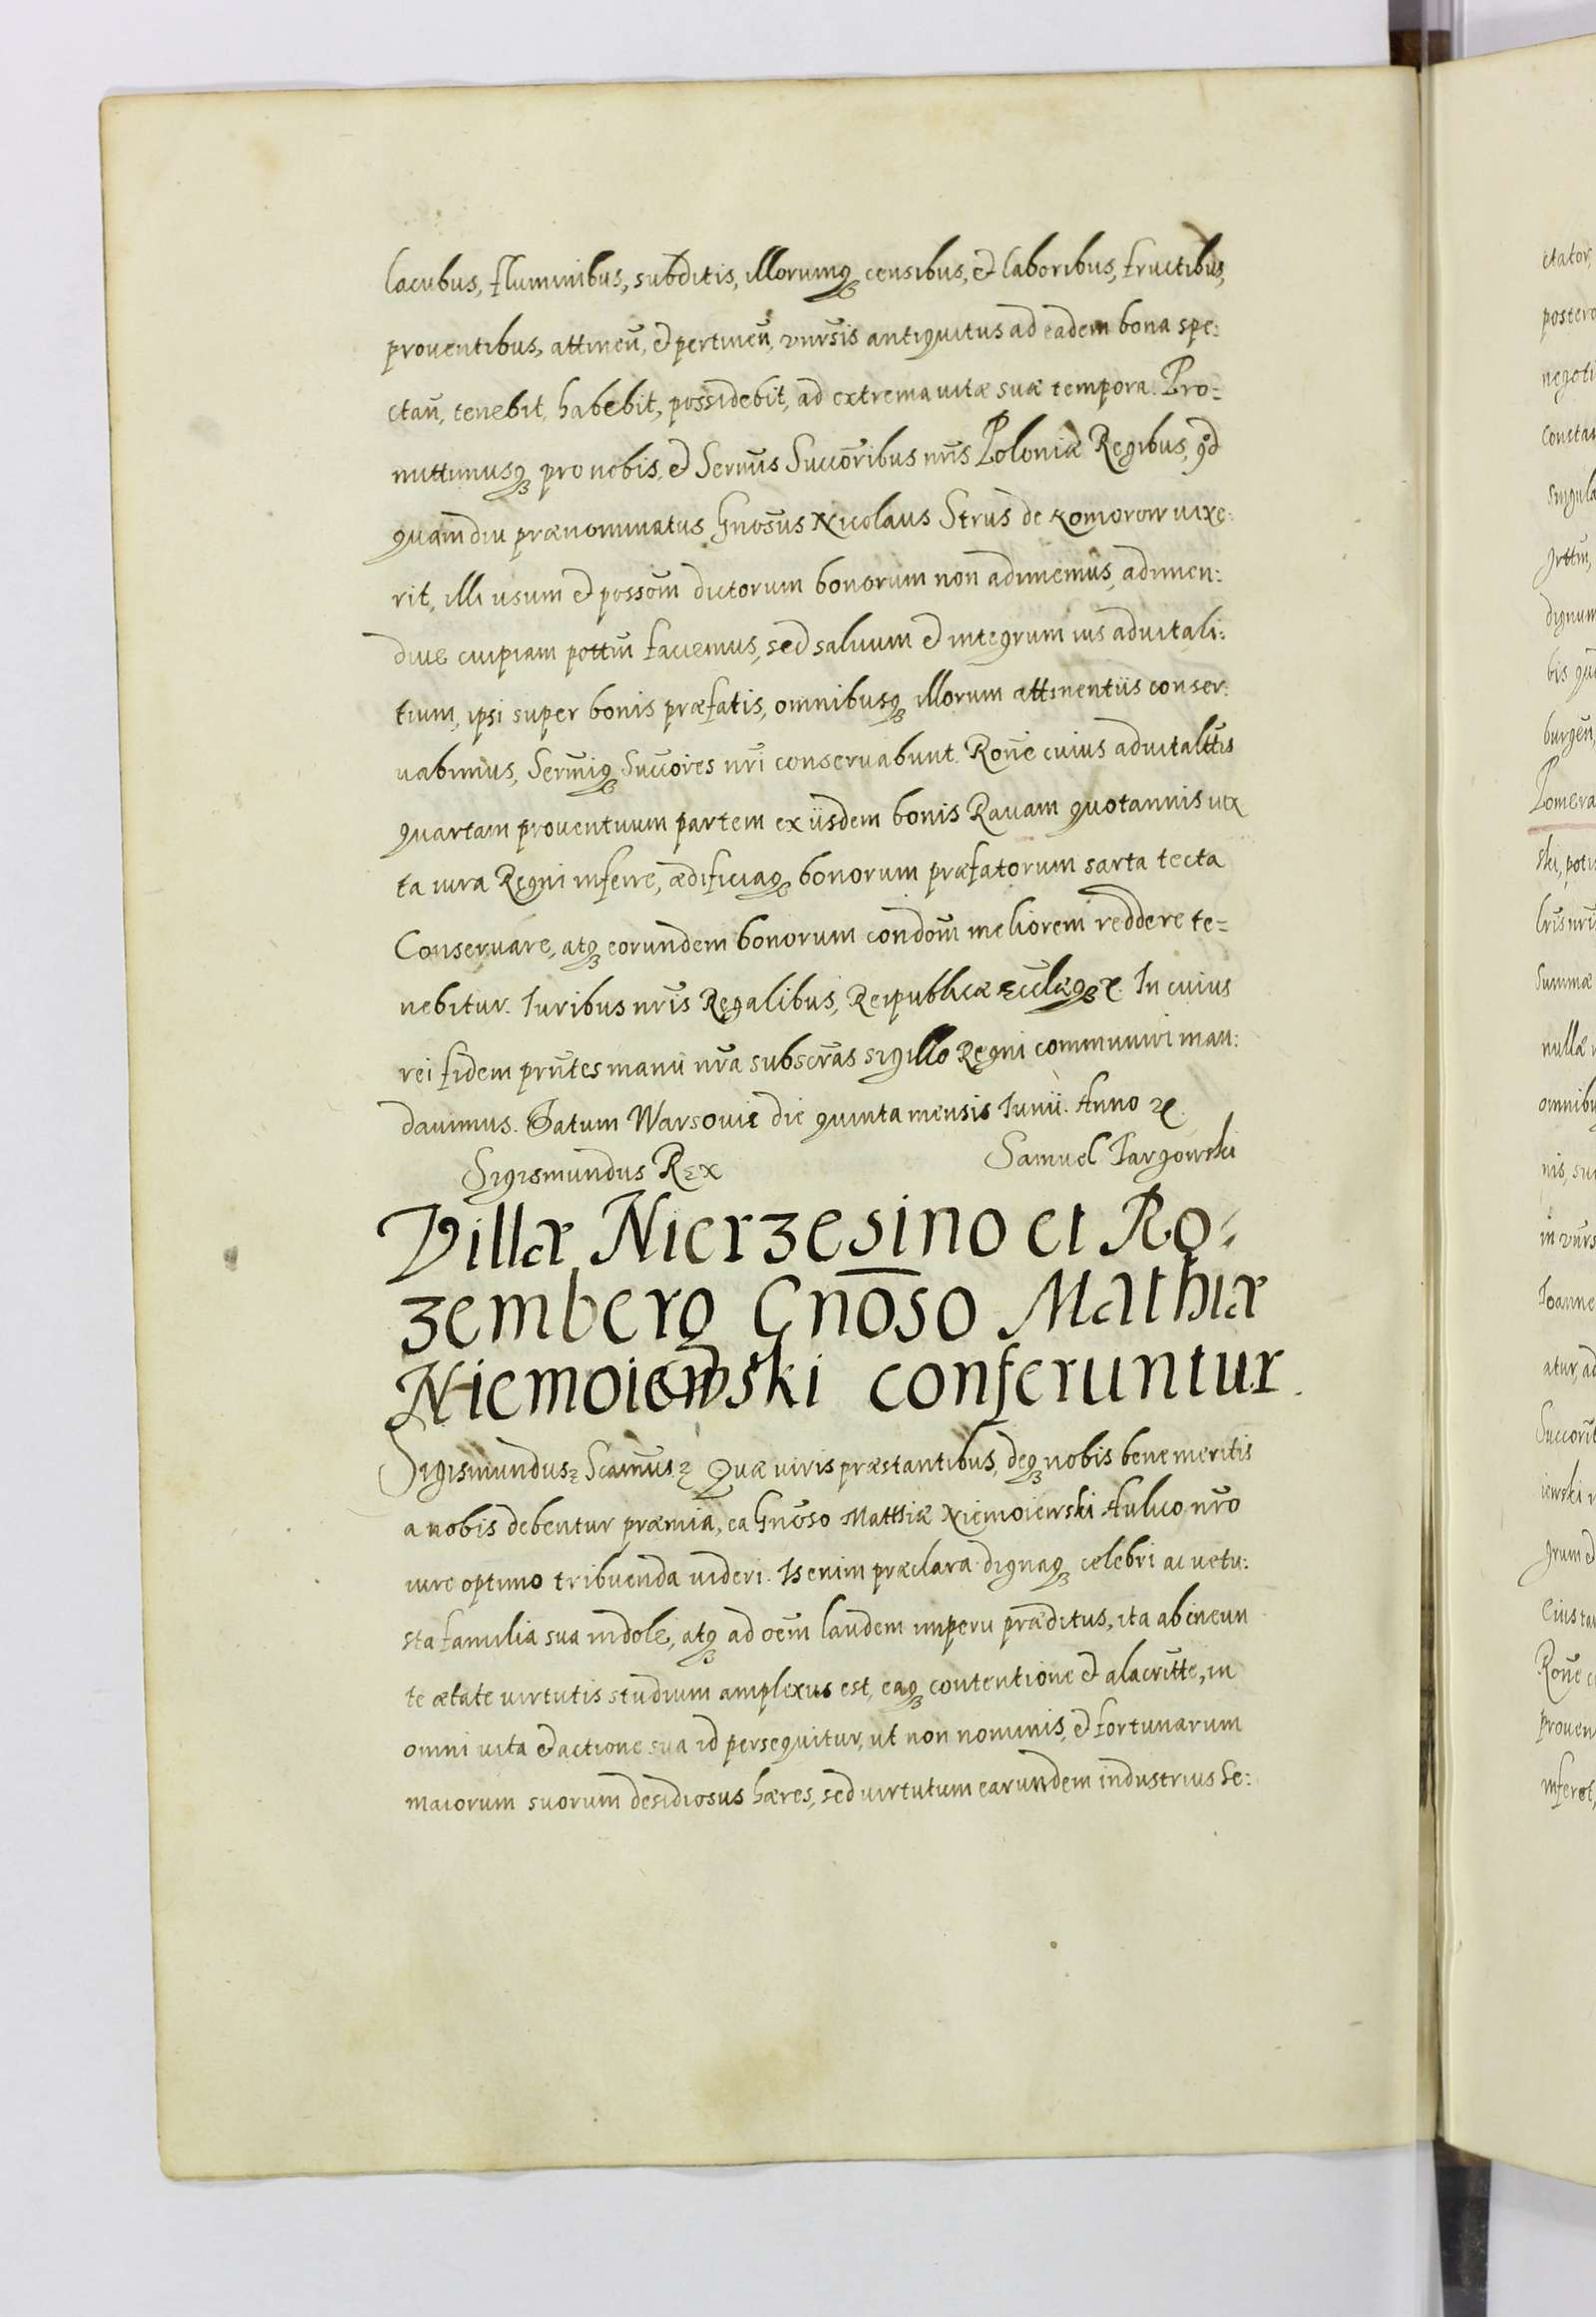 lacubus, fluminibus, subditis, illorumq3 censibus, et laboribus, fructibus,
proventibus, attineñ, et pertineñ, vnrsis antiquitus ad eadem bona spe:
ctañ, tenebit, habebit, possidebit, ad extrema vitæ suæ tempora. Pro-
mittimusq3 pro nobis, et Sermis Succoribus nris Poloniæ Regibus, qd
quamdiu prænominatus Gnosus Nicolaus Strus de Komorow uixe:
rit, illi usum et possom dictorum bonorum non adimemus, adimen:
diue cuipiam pottm faciemus, sed saluum et integrum ius aduitali:
tium, ipsi super bonis præfatis, omnibusq3 illorum attinentiis conser:
uabimus, Sermiq3 Succores nri conseruabunt. Rone cuius aduitalttis
quartam prouentuum partem ex iisdem bonis Rauam quotannis iux
ta iura Regni inferre, ædificiaq3 bonorum præfatorum sarta tecta
Conseruare, atq3 eorundem bonorum condom meliorem reddere te=
nebitur. Iuribus nris Regalibus, Reipublicæ Ecclæq3 &. In cuius
rei fidem prntes manu nra subscras sigillo Regni communiri man:
dauimus. Datum Warsouie die quinta mensis Iunii. Anno &.
Sigismundus Rex Samuel Targowski
Villæ Nierzesino et Ro-
zemberg Gnoso Mathiæ
Niemoiewski conferuntur.
Sigismundus & Scamus & Quæ viris præstantibus, deq3 nobis bene meritis
a nobis debentur præmia, ea Gnoso Matthiæ Niemoiewski Aulico nro
iure optimo tribuenda uideri. Is enim præclara dignaq3 celebri ac uetu:
sta familia sua indole, atq3 ad oem laudem impetu præditus, ita ab ineun
te ætate uirtutis studium amplexus est, eaq3 contentione et alacritte, in
omni uita et actione sua id persequitur, ut non nominis, et fortunarum
maiorum suorum desidiosus hæres, sed uirtutum earundem industrius Se: